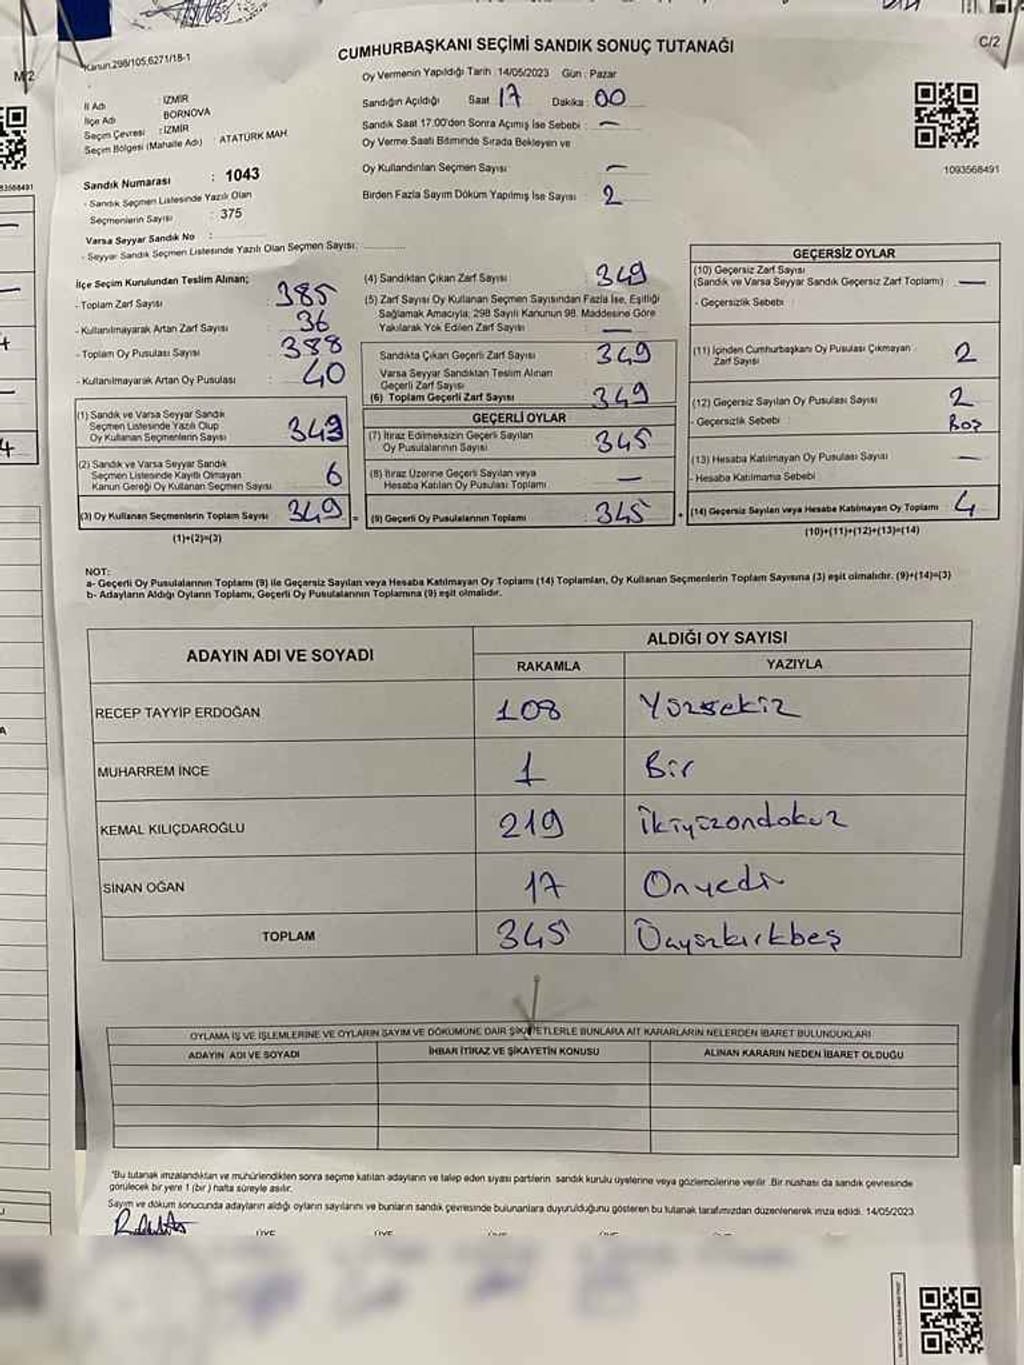 CUMHURBAŞKANI SEÇİMİ SANDIK SONUÇ TUTANAĞI
C/2
Kanun.298/105,6271/18-1
M/2
Oy Vermenin Yapıldığı Tarih : 14/05/2023 Gün : Pazar
İl Adı : İZMİR
İlçe Adı : BORNOVA
Seçim Çevresi : İZMİR
Seçim Bölgesi (Mahalle Adı) : ATATÜRK MAH.
Sandığın Açıldığı Saat 17 Dakika : 00
Sandık Saat 17.00'den Sonra Açımış İse Sebebi : —
Oy Verme Saati Bitiminde Sırada Bekleyen ve
Oy Kullandırılan Seçmen Sayısı : —
Birden Fazla Sayım Döküm Yapılmış İse Sayısı : 2
1093568491
Sandık Numarası : 1043
- Sandık Seçmen Listesinde Yazılı Olan
Seçmenlerin Sayısı : 375
Varsa Seyyar Sandık No :
- Seyyar Sandık Seçmen Listesinde Yazılı Olan Seçmen Sayısı:
İlçe Seçim Kurulundan Teslim Alınan;
- Toplam Zarf Sayısı : 385
- Kullanılmayarak Artan Zarf Sayısı : 36
- Toplam Oy Pusulası Sayısı : 388
- Kullanılmayarak Artan Oy Pusulası : 40
(1) Sandık ve Varsa Seyyar Sandık
Seçmen Listesinde Yazılı Olup
Oy Kullanan Seçmenlerin Sayısı : 343
(2) Sandık ve Varsa Seyyar Sandık
Seçmen Listesinde Kayıtlı Olmayan
Kanun Gereği Oy Kullanan Seçmen Sayısı : 6
(3) Oy Kullanan Seçmenlerin Toplam Sayısı : 349
(1)+(2)=(3)
(4) Sandıktan Çıkan Zarf Sayısı : 349
(5) Zarf Sayısı Oy Kullanan Seçmen Sayısından Fazla İse, Eşitliği
Sağlamak Amacıyla; 298 Sayılı Kanunun 98. Maddesine Göre
Yakılarak Yok Edilen Zarf Sayısı : —
Sandıkta Çıkan Geçerli Zarf Sayısı : 349
Varsa Seyyar Sandıktan Teslim Alınan
Geçerli Zarf Sayısı :
(6) Toplam Geçerli Zarf Sayısı : 349
GEÇERLİ OYLAR
(7) İtiraz Edilmeksizin Geçerli Sayılan
Oy Pusulalarının Sayısı : 345
(8) İtiraz Üzerine Geçerli Sayılan veya
Hesaba Katılan Oy Pusulası Toplamı : —
= (9) Geçerli Oy Pusulalarının Toplamı : 345
GEÇERSİZ OYLAR
(10) Geçersiz Zarf Sayısı
(Sandık ve Varsa Seyyar Sandık Geçersiz Zarf Toplamı) : —
- Geçersizlik Sebebi :
(11) İçinden Cumhurbaşkanı Oy Pusulası Çıkmayan
Zarf Sayısı : 2
(12) Geçersiz Sayılan Oy Pusulası Sayısı : 2
- Geçersizlik Sebebi : Boş
(13) Hesaba Katılmayan Oy Pusulası Sayısı : —
- Hesaba Katılmama Sebebi
+ (14) Geçersiz Sayılan veya Hesaba Katılmayan Oy Toplamı : 4
(10)+(11)+(12)+(13)=(14)
NOT:
a- Geçerli Oy Pusulalarının Toplamı (9) ile Geçersiz Sayılan veya Hesaba Katılmayan Oy Toplamı (14) Toplamları, Oy Kullanan Seçmenlerin Toplam Sayısına (3) eşit olmalıdır. (9)+(14)=(3)
b- Adayların Aldığı Oyların Toplamı, Geçerli Oy Pusulalarının Toplamına (9) eşit olmalıdır.
ADAYIN ADI VE SOYADI ALDIĞI OY SAYISI
RAKAMLA YAZIYLA
RECEP TAYYİP ERDOĞAN 108 Yüzsekiz
MUHARREM İNCE 1 Bir
KEMAL KILIÇDAROĞLU 219 İkiyüzondokuz
SİNAN OĞAN 17 Onyedi
TOPLAM 345 Üçyüzkırkbeş
OYLAMA İŞ VE İŞLEMLERİNE VE OYLARIN SAYIM VE DÖKÜMÜNE DAİR ŞİKAYETLERLE BUNLARA AİT KARARLARIN NELERDEN İBARET BULUNDUKLARI
ADAYIN ADI VE SOYADI İHBAR İTİRAZ VE ŞİKAYETİN KONUSU ALINAN KARARIN NEDEN İBARET OLDUĞU
*Bu tutanak imzalandıktan ve mühürlendikten sonra seçime katılan adayların ve talep eden siyasi partilerin sandık kurulu üyelerine veya gözlemcilerine verilir. Bir nüshası da sandık çevresinde
görülecek bir yere 1 (bir ) hafta süreyle asılır.
Sayım ve döküm sonucunda adayların aldığı oyların sayılarını ve bunların sandık çevresinde bulunanlara duyurulduğunu gösteren bu tutanak tarafımızdan düzenlenerek imza edildi. 14/05/2023
ÜYE ÜYE ÜYE ÜYE